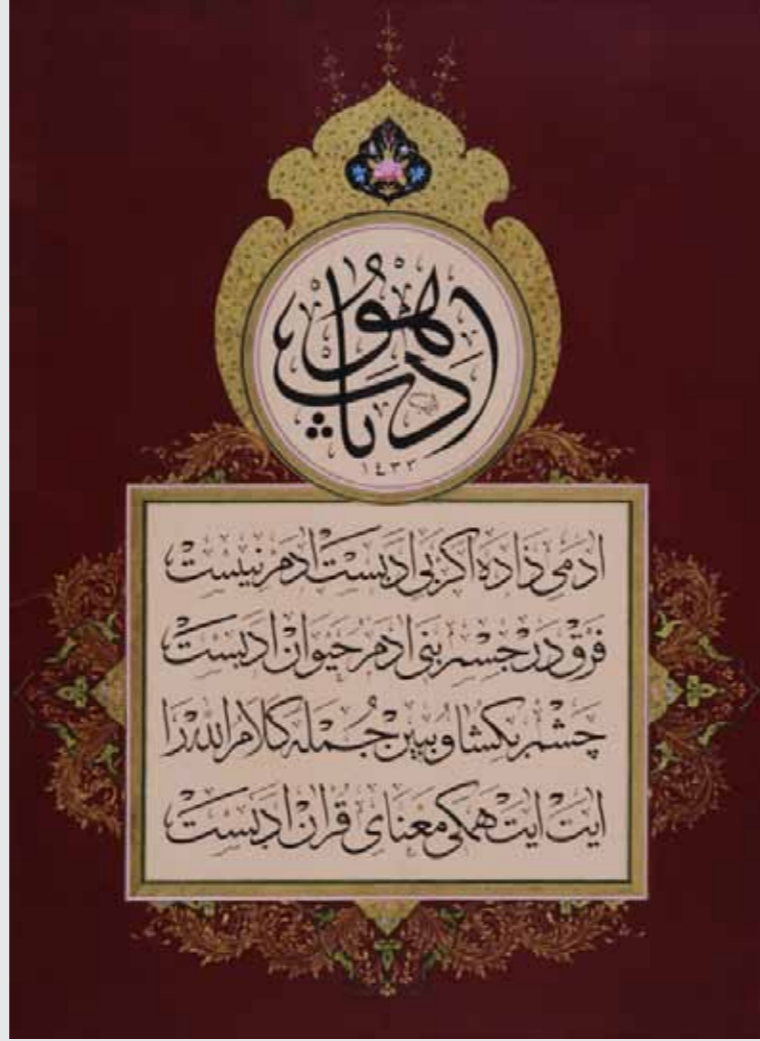 ادب يا هو
١٤٣٣
ادمی زاده اکر بی ادبست ادم نیست
فرق در جسم بنی ادم حیوان ادبست
چشم بکشا و ببین جمله کلام الله را
ایت ایت همکی معنای قران ادبست